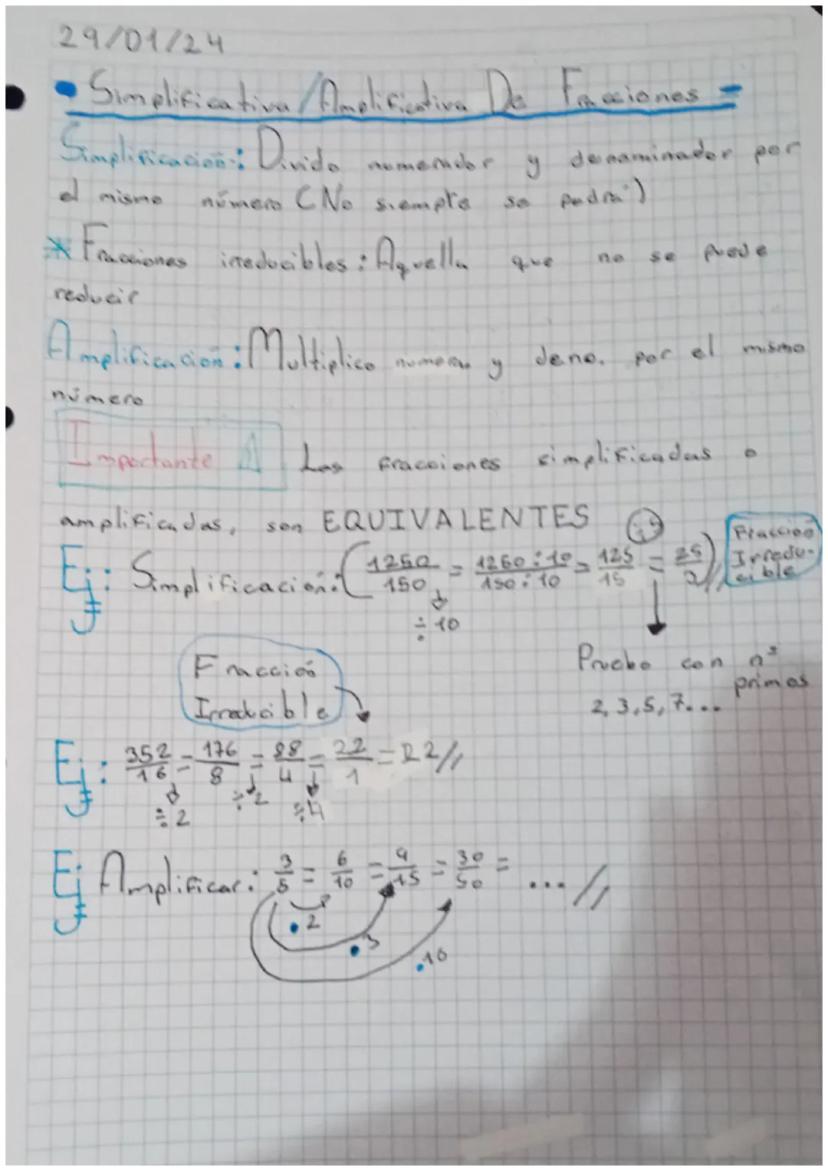 29/01/24
• Simplificativa/Amplificativa De Fracciones -
Simplificación: Divido numerador y denominador por
el mismo número (No siempre se podrá)
* Fracciones irreducibles: Aquella que no se puede
reducir
Amplificación: Multiplico numera y deno. por el mismo
número
Importante ⚠ Las fracciones simplificadas o
amplificadas, son EQUIVALENTES
Ej: Simplificación: (1250/150 = 1250:10/150:10 = 125/15 = 25/3)// Fracción Irreducible
÷10
Pruebo con nºs primos
2, 3, 5, 7...
Fracción
Irreducible
Ej: 352/16 = 176/8 = 88/4 = 22/1 = 22//
÷2 ÷2 ÷4
Ej Amplificar: 3/5 = 6/10 = 9/15 = 30/50 = ...//
•2
•3
•10